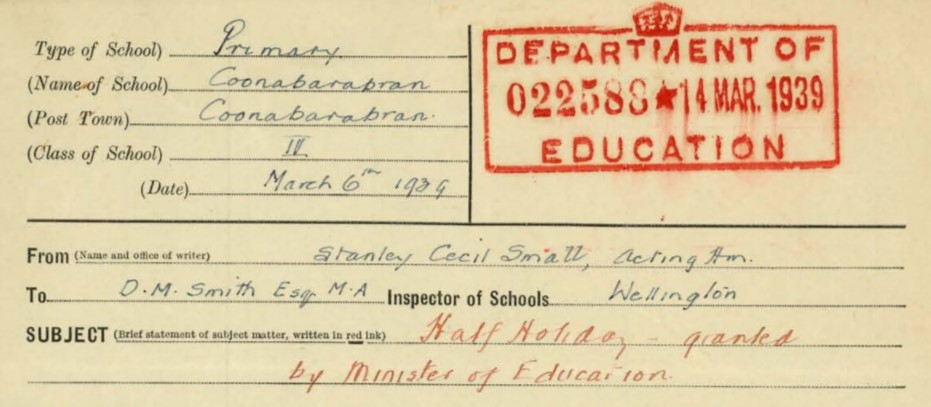 Type of School) Primary
(Name of School) Coonabarabran
(Post Town) Coonabarabran.
(Class of School) IV
(Date) March 6th 1939
DEPARTMENT OF
022588★14 MAR. 1939
EDUCATION
From (Name and office of writer) Stanley Cecil Small, Acting Hm.
To D.M. Smith Esq M.A Inspector of Schools Wellington
SUBJECT (Brief statement of subject matter, written in red ink) Half Holiday – granted
by Minister of Education.